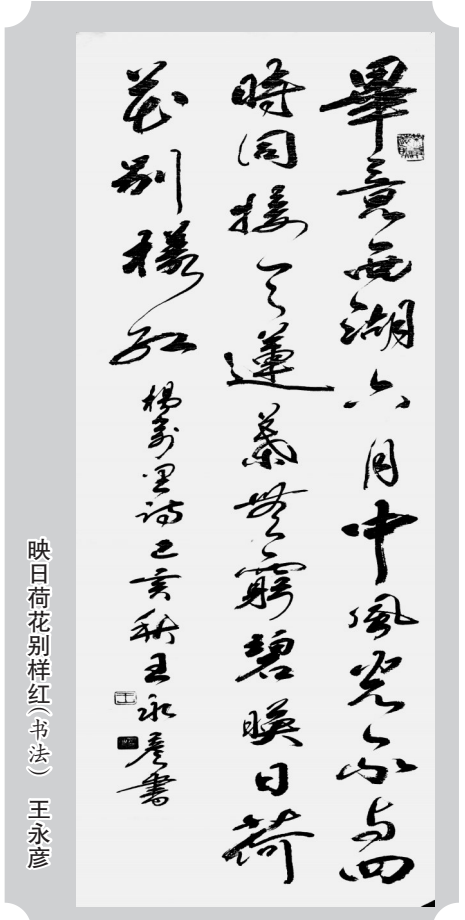 畢竟西湖六月中風光不与四
時同接天蓮葉無窮碧暎日荷
花别樣紅 楊萬里詩己亥秋王永彦書
映日荷花别样红(书法) 王永彦